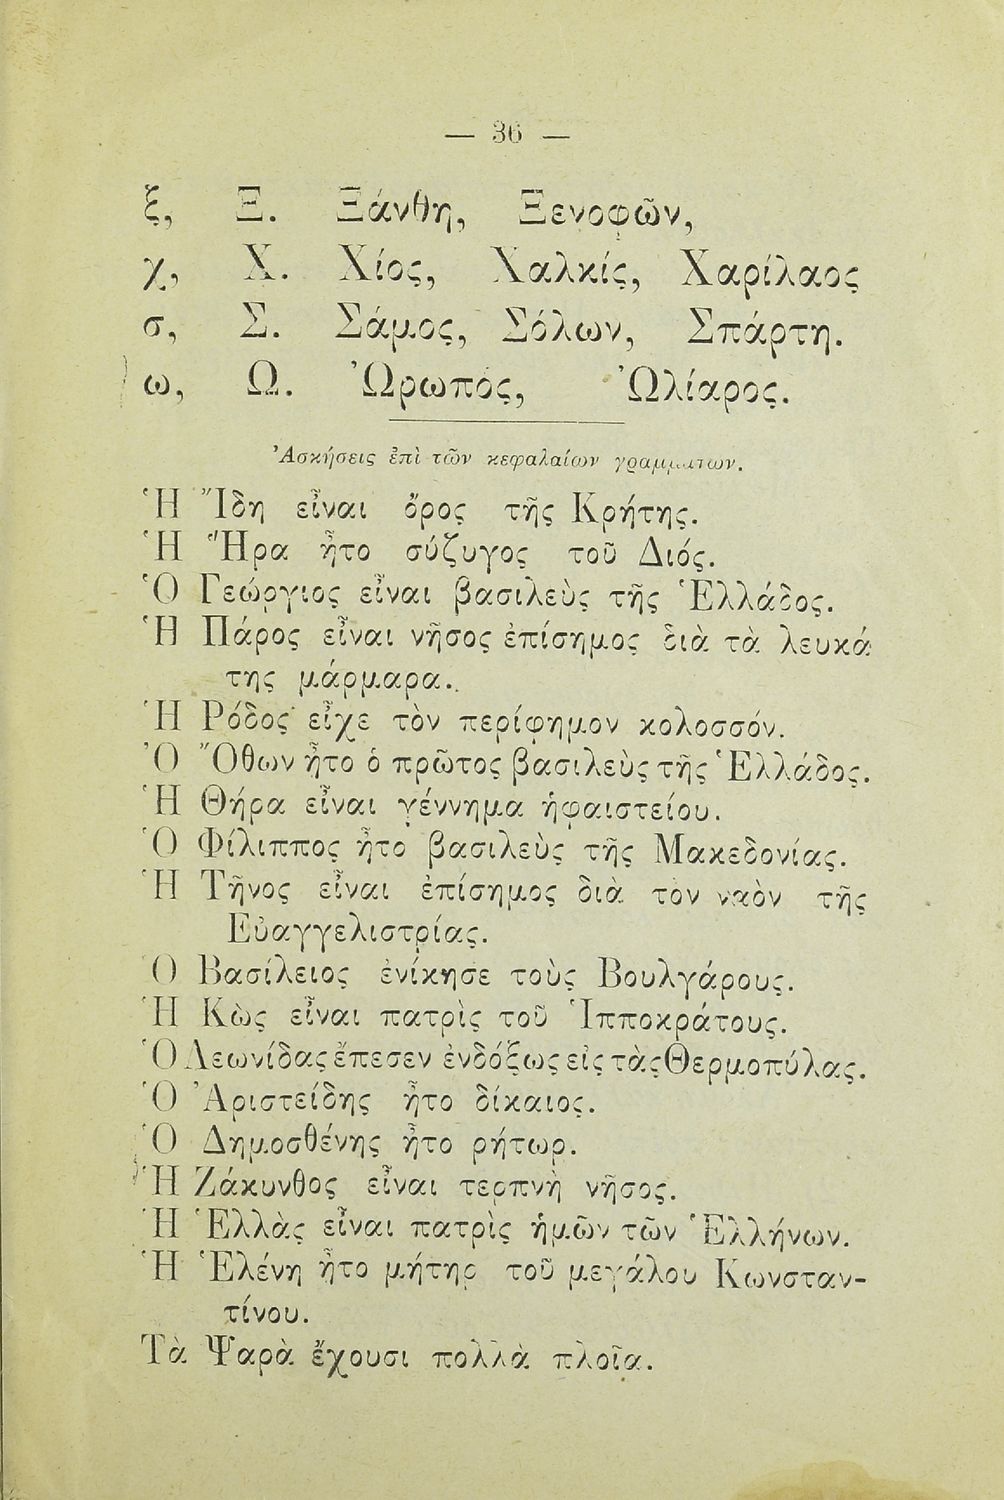 — 36 —
ξ, Ξ. Ξάνθη, Ξενοφῶν,
χ, Χ. Χίος, Χαλκίς, Χαρίλαος
σ, Σ. Σάμος, Σόλων, Σπάρτη.
ω, Ω. Ὠρωπός, Ὠλίαρος.
Ἀσκήσεις ἐπὶ τῶν κεφαλαίων γραμμάτων.
Ἡ Ἴδη εἶναι ὄρος τῆς Κρήτης.
Ἡ Ἥρα ἦτο σύζυγος τοῦ Διός.
Ὁ Γεώργιος εἶναι βασιλεὺς τῆς Ἑλλάδος.
Ἡ Πάρος εἶναι νῆσος ἐπίσημος διὰ τὰ λευκά
της μάρμαρα.
Ἡ Ῥόδος εἶχε τὸν περίφημον κολοσσόν.
Ὁ Ὄθων ἦτο ὁ πρῶτος βασιλεὺς τῆς Ἑλλάδος.
Ἡ Θήρα εἶναι γέννημα ἡφαιστείου.
Ὁ Φίλιππος ἦτο βασιλεὺς τῆς Μακεδονίας.
Ἡ Τῆνος εἶναι ἐπίσημος διὰ τὸν ναὸν τῆς
Εὐαγγελιστρίας.
Ὁ Βασίλειος ἐνίκησε τοὺς Βουλγάρους.
Ἡ Κὼς εἶναι πατρὶς τοῦ Ἱπποκράτους.
Ὁ Λεωνίδας ἔπεσεν ἐνδόξως εἰς τὰς Θερμοπύλας.
Ὁ Ἀριστείδης ἦτο δίκαιος.
Ὁ Δημοσθένης ἦτο ρήτωρ.
Ἡ Ζάκυνθος εἶναι τερπνὴ νῆσος.
Ἡ Ἑλλὰς εἶναι πατρὶς ἡμῶν τῶν Ἑλλήνων.
Ἡ Ἑλένη ἦτο μήτηρ τοῦ μεγάλου Κωνσταν-
τίνου.
Τὰ Ψαρὰ ἔχουσι πολλὰ πλοῖα.